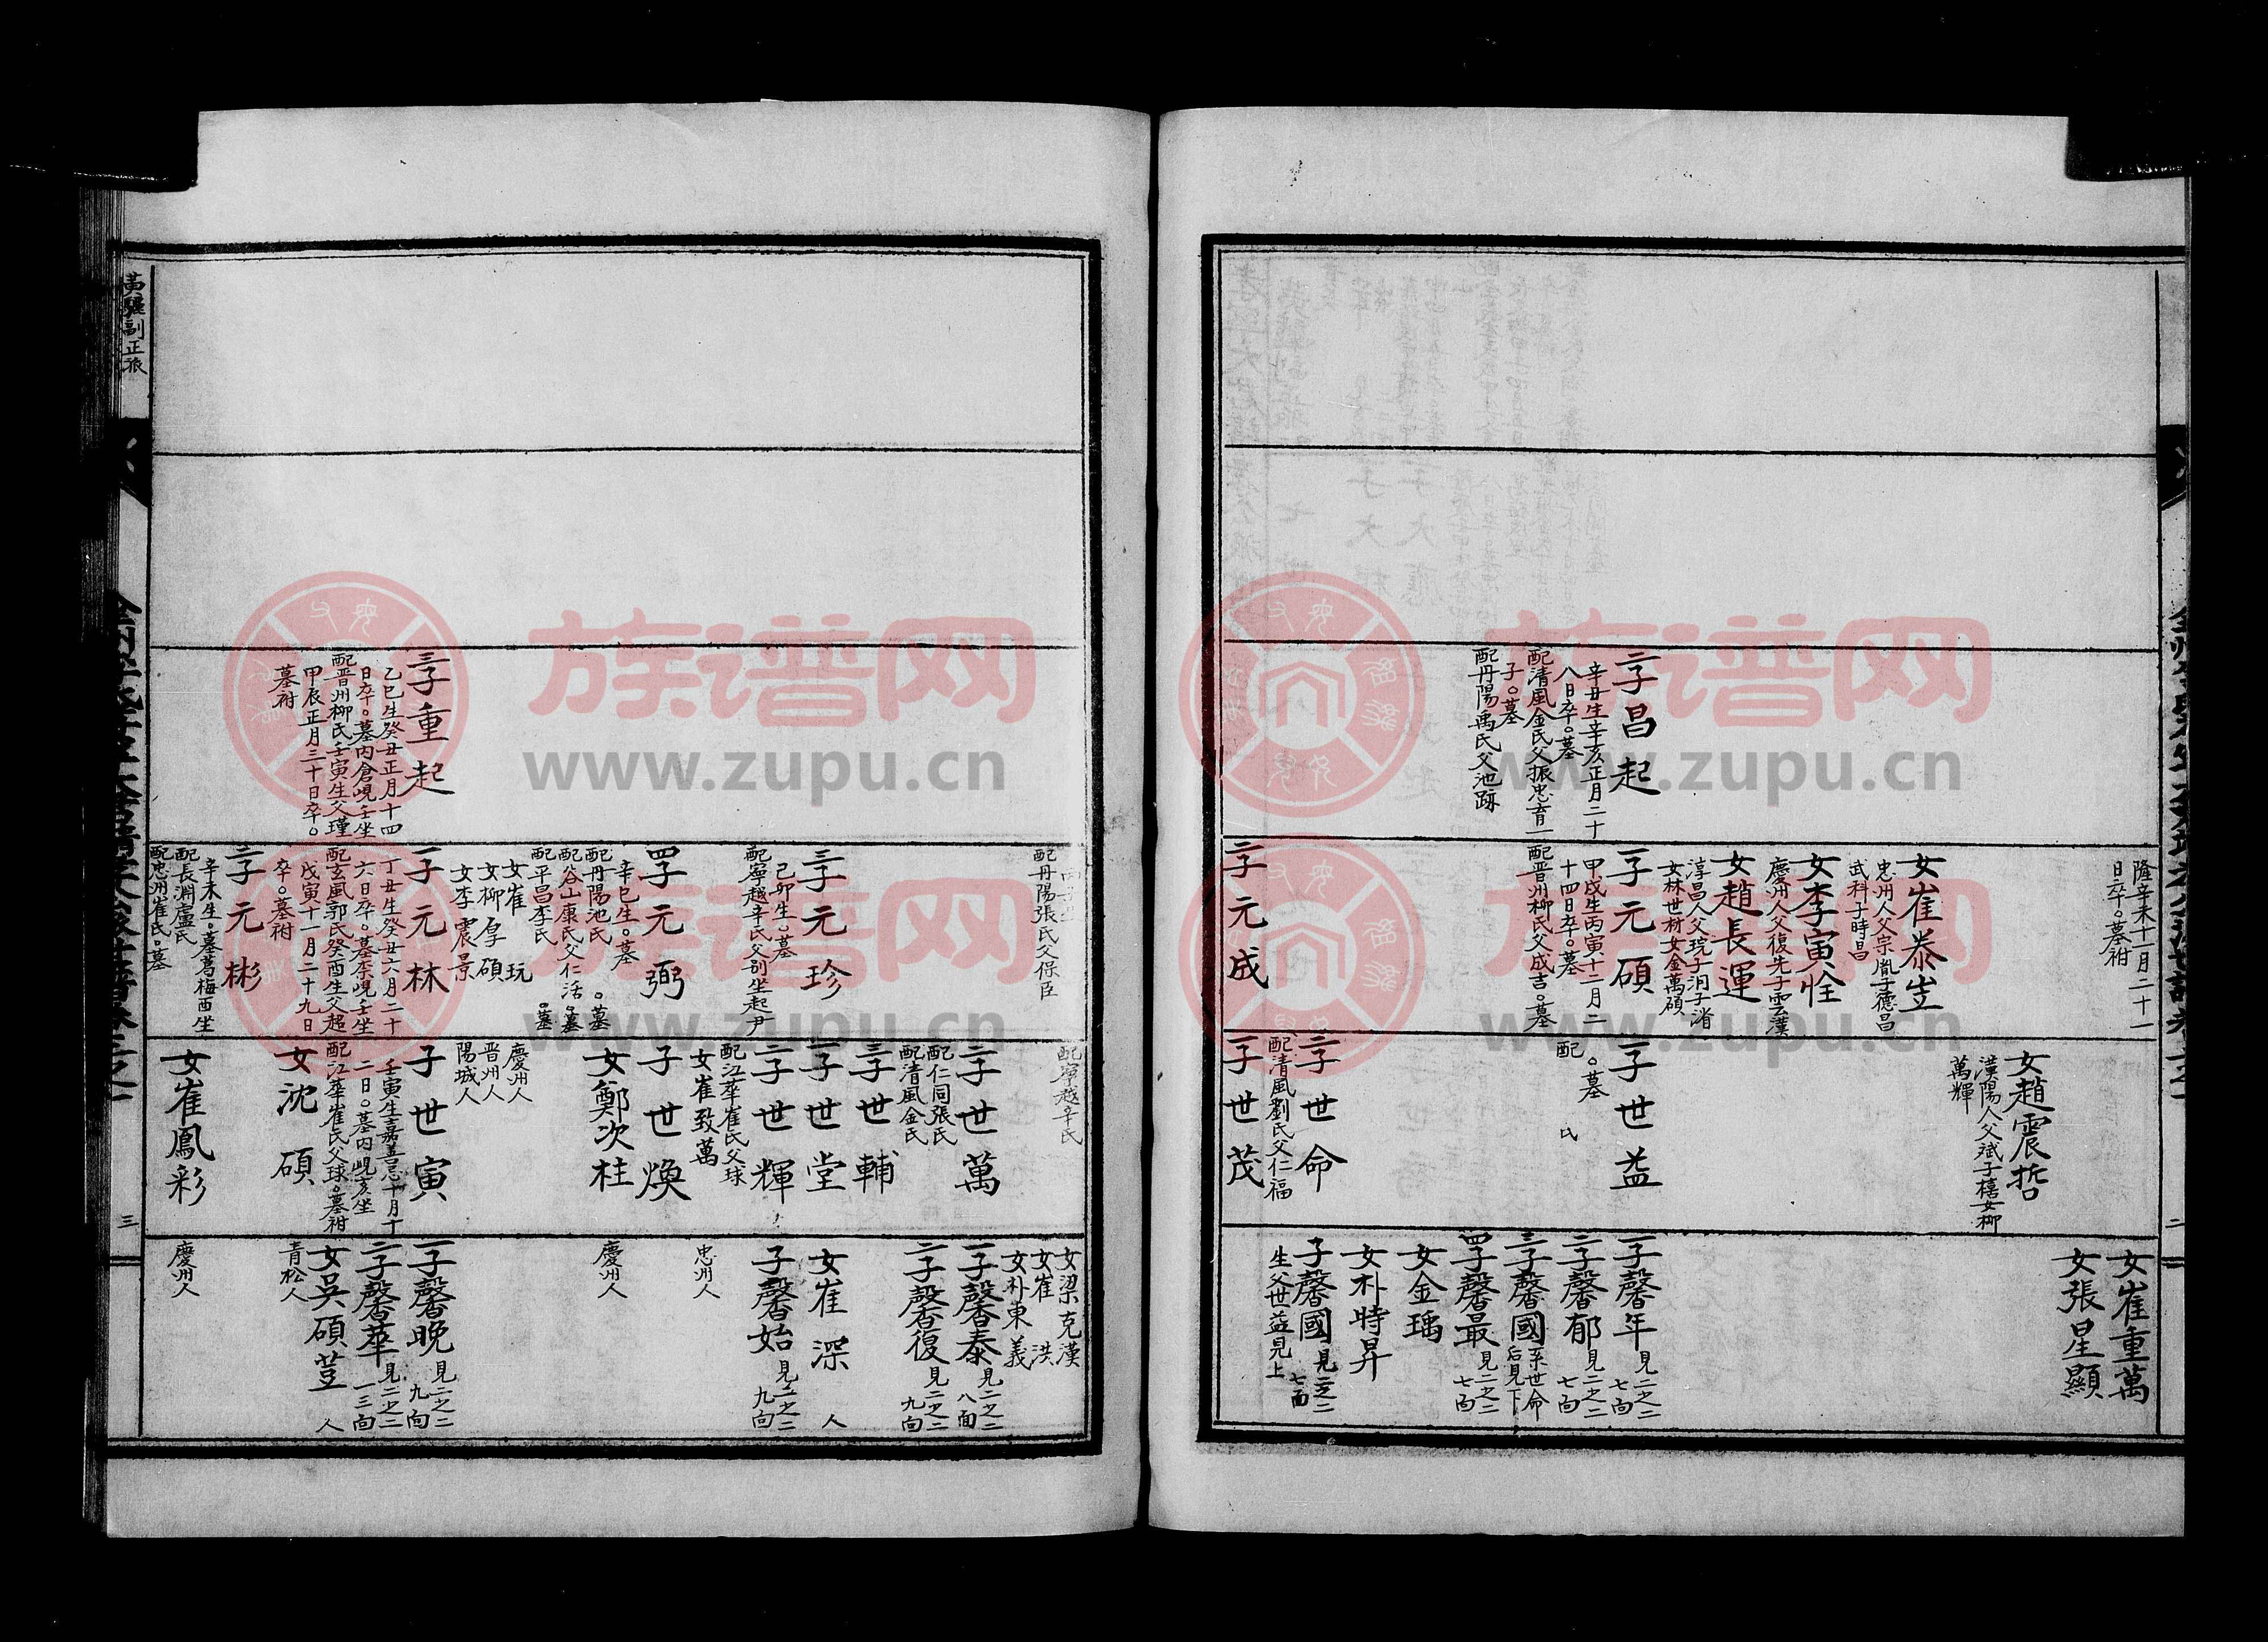 二子昌起
辛丑生辛亥正月二十
八日卒。墓
配清風金氏父振忠育一
子。墓
配丹陽禹氏父池跡
隆辛未十一月二十一
日卒。墓祔
女崔泰岦
忠州人父宗胤子德昌
武科子時昌
女李寅恮
慶州人父復先子雲漢
女趙長運
淳昌人父琓子润子渚
女林世材女金萬碩
一子元碩
甲戌生丙寅十二月二
十四日卒。墓
配晋州柳氏父成吉。墓
二子元成
女趙震哲
漢陽人父斌子橲女柳
萬輝
一子世益
。墓
配 氏
三子世命
配清風劉氏父仁福
一子世茂
女崔重萬
女張星顯
一子馨年 見二之二 七面
二子馨郁 見二之二 七面
三子馨國 系世命 后見下
四子馨最 見二之二 七面
女金瑀
女朴時昇
子馨國 見二之二 七面
生父世益見上
三子重起
乙巳生癸丑正月十四
日卒。墓内倉峴壬坐
配晋州柳氏壬寅生父瑾
甲辰正月三十日卒。
墓祔
配丹陽張氏父保臣
三子元珍
己卯生。墓
配寧越辛氏父别坐起尹
四子元弼
辛巳生。墓
配丹陽池氏 。墓
配谷山康氏父仁活。墓
配平昌李氏 。墓
女崔玩
女柳厚碩
女李震景
一子元林
丁丑生癸丑六月二十
六日卒。墓柰峴壬坐
配玄風郭氏癸酉生父超
戊寅十一月二十九日
卒。墓祔
二子元彬
辛未生。墓葛梅酉坐
配長淵盧氏
配忠州崔氏。墓
配寧越辛氏
二子世萬
配仁同張氏
配清風金氏
三子世輔
一子世堂
二子世輝
配江華崔氏父球
女崔致萬
子世煥
女鄭次柱
慶州人
晋州人
陽城人
子世寅
壬寅生嘉善忌十月十
二日。墓内峴亥坐
配江華崔氏父球。墓祔
女沈碩
女崔鳳彩
女梁克漢
女崔洪
女朴東義
一子馨泰 見二之二 八面
二子馨復 見二之二 九向
女崔深 人
子馨始 見二之二 九向
忠州人
慶州人
一子馨晚 見二之二 九向
二子馨華 見二之二 一三向
女吳碩荳 人
青松人
慶州人
二
三
www.zupu.cn
族谱网
www.zupu.cn
族谱网
www.zupu.cn
族谱网
www.zupu.cn
族谱网